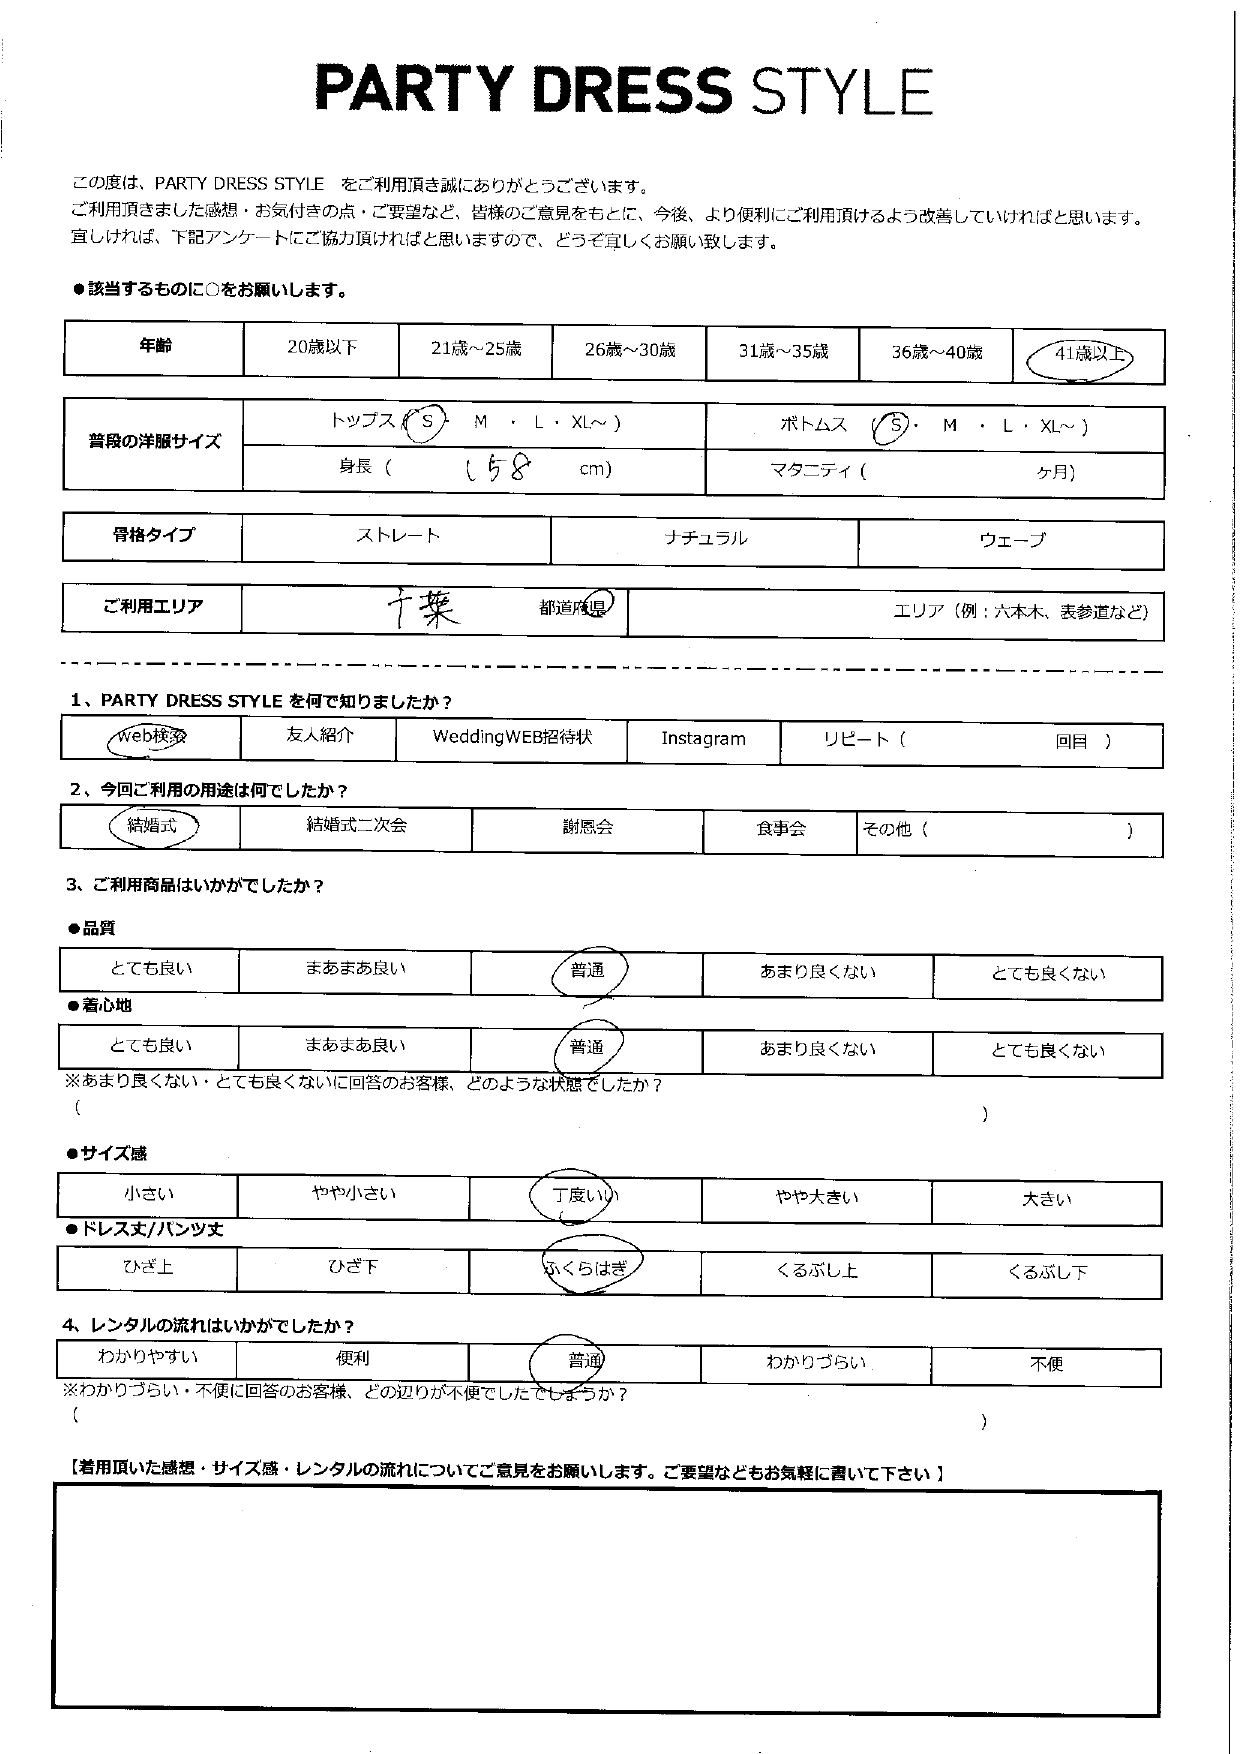 PARTY DRESS STYLE
この度は、PARTY DRESS STYLE をご利用頂き誠にありがとうございます。
ご利用頂きました感想・お気付きの点・ご要望など、皆様のご意見をもとに、今後、より便利にご利用頂けるよう改善していければと思います。
宜しければ、下記アンケートにご協力頂ければと思いますので、どうぞ宜しくお願い致します。
●該当するものに○をお願いします。
年齢 20歳以下 21歳～25歳 26歳～30歳 31歳～35歳 36歳～40歳 41歳以上
普段の洋服サイズ トップス ( S ・ M ・ L ・ XL～ ) ボトムス ( S ・ M ・ L ・ XL～ )
身長 ( 158 cm) マタニティ ( ヶ月)
骨格タイプ ストレート ナチュラル ウェーブ
ご利用エリア 千葉 都道府県 エリア（例：六本木、表参道など）
1、PARTY DRESS STYLE を何で知りましたか？
web検索 友人紹介 WeddingWEB招待状 Instagram リピート ( 回目 )
2、今回ご利用の用途は何でしたか？
結婚式 結婚式二次会 謝恩会 食事会 その他 ( )
3、ご利用商品はいかがでしたか？
●品質
とても良い まあまあ良い 普通 あまり良くない とても良くない
●着心地
とても良い まあまあ良い 普通 あまり良くない とても良くない
※あまり良くない・とても良くないに回答のお客様、どのような状態でしたか？
( )
●サイズ感
小さい やや小さい 丁度いい やや大きい 大きい
●ドレス丈/パンツ丈
ひざ上 ひざ下 ふくらはぎ くるぶし上 くるぶし下
4、レンタルの流れはいかがでしたか？
わかりやすい 便利 普通 わかりづらい 不便
※わかりづらい・不便に回答のお客様、どの辺りが不便でしたでしょうか？
( )
【着用頂いた感想・サイズ感・レンタルの流れについてご意見をお願いします。ご要望などもお気軽に書いて下さい 】